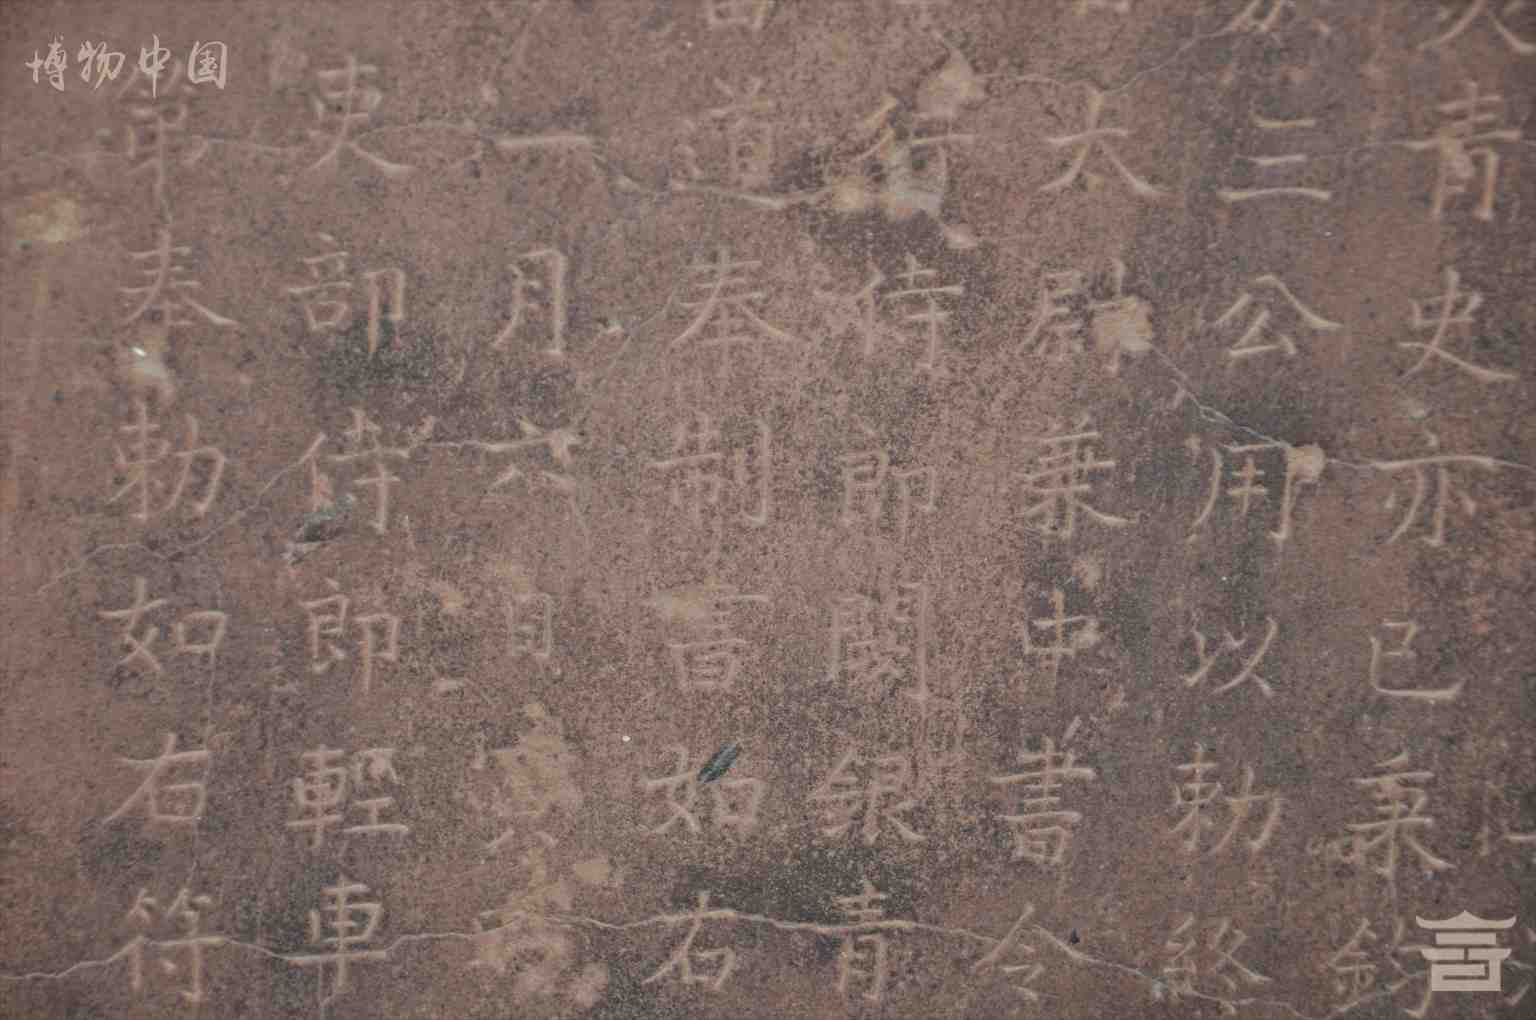 博物中国
青史亦已秉鈞
三公用以勅終
太尉兼中書令
行侍郎闕銀青
道奉制書如右
一月六日
吏部侍郎輕車
奉勅如右符